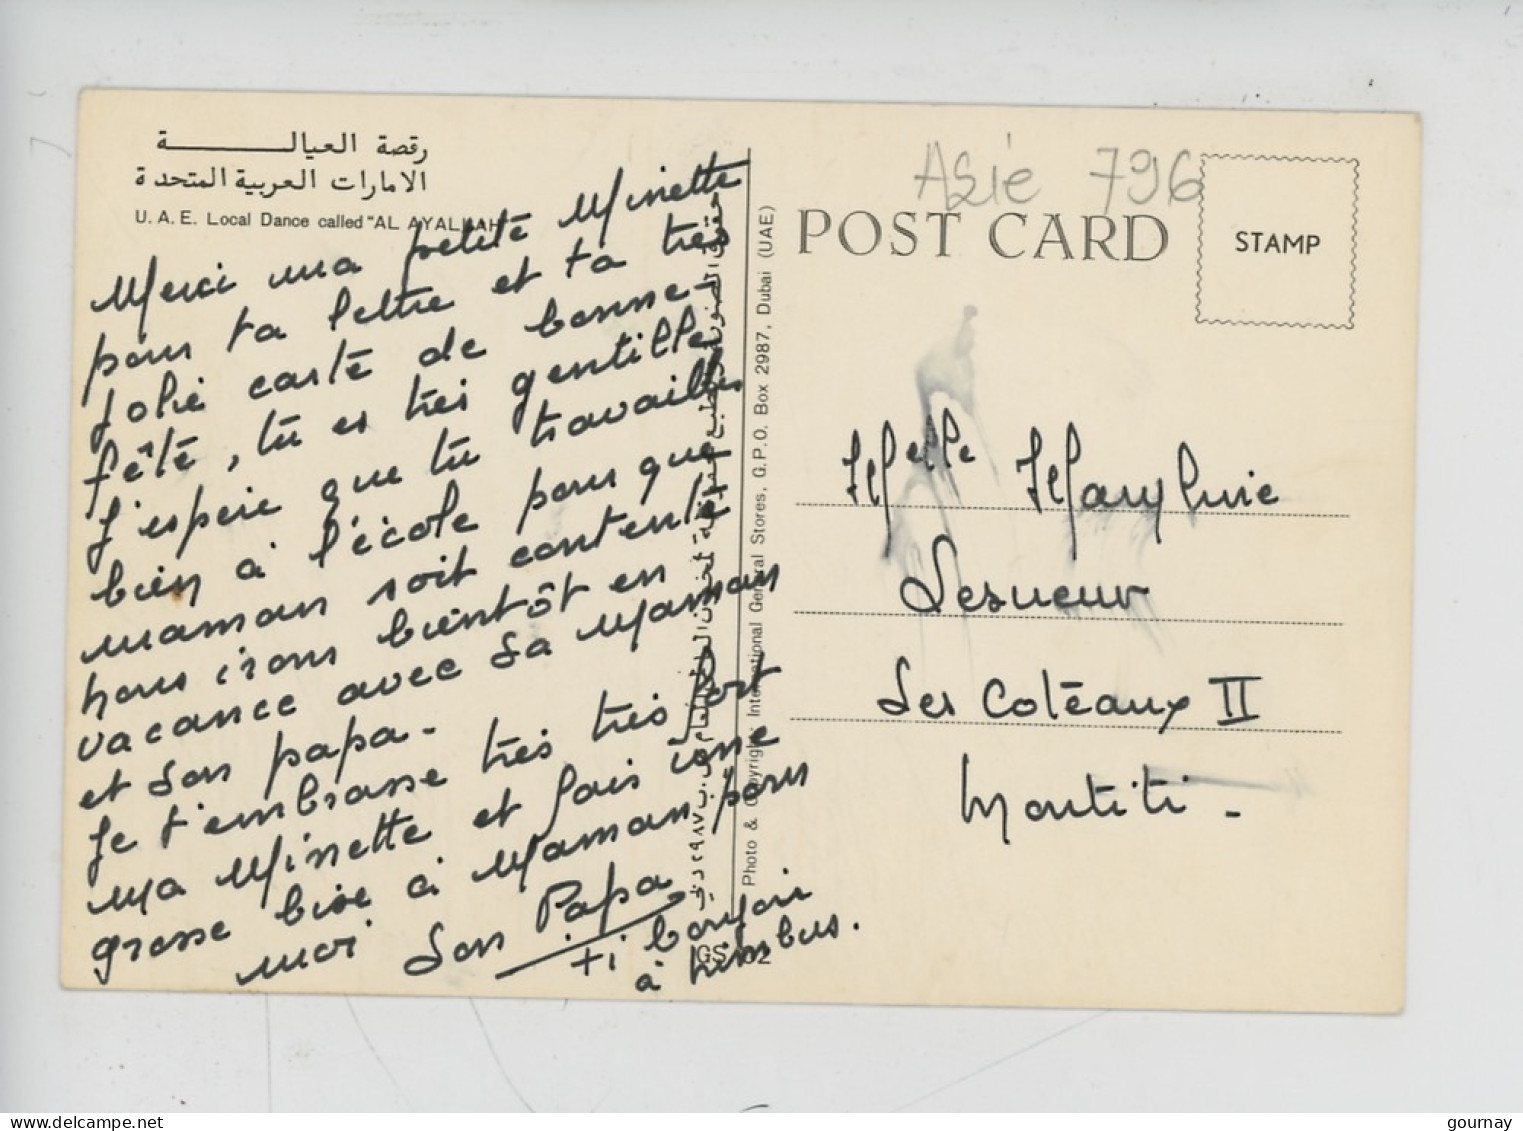 رقصة العيالــــــــــة
الامارات العربية المتحدة
U.A.E. Local Dance called "AL AYALLAH"
Merci ma petite Minette
pour ta lettre et ta très
jolie carte de bonne-
fête, tu es très gentille
J'espère que tu travailles
bien à l'école pour que
maman soit contente
nous irons bientôt en
vacance avec sa Maman
et son papa.
Je t'embrasse très très fort
Ma Minette et fais une
grosse bise à Maman pour
moi Son Papa
+ i bonjour
à nimbus.
Photo & Copyright: International General Stores, G.P.O. Box 2987, Dubai (UAE)
Asie 796
POST CARD
STAMP
Melle Marylurie
Lesueur
Les Coteaux II
Montiti -
gournay
delcampe.net